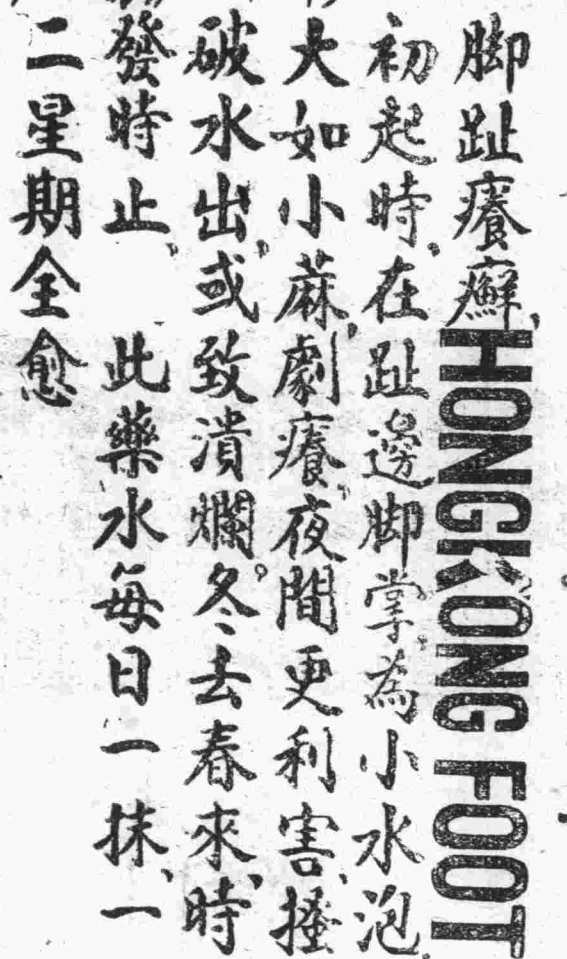 脚趾癢癬，HONGKONG FOOT
初起時，在趾邊脚掌，為小水泡，
大如小蔴，劇癢，夜間更利害，搔
破水出，或致潰爛。冬去春來，時
發時止，　此藥水每日一抹，一
二星期全愈